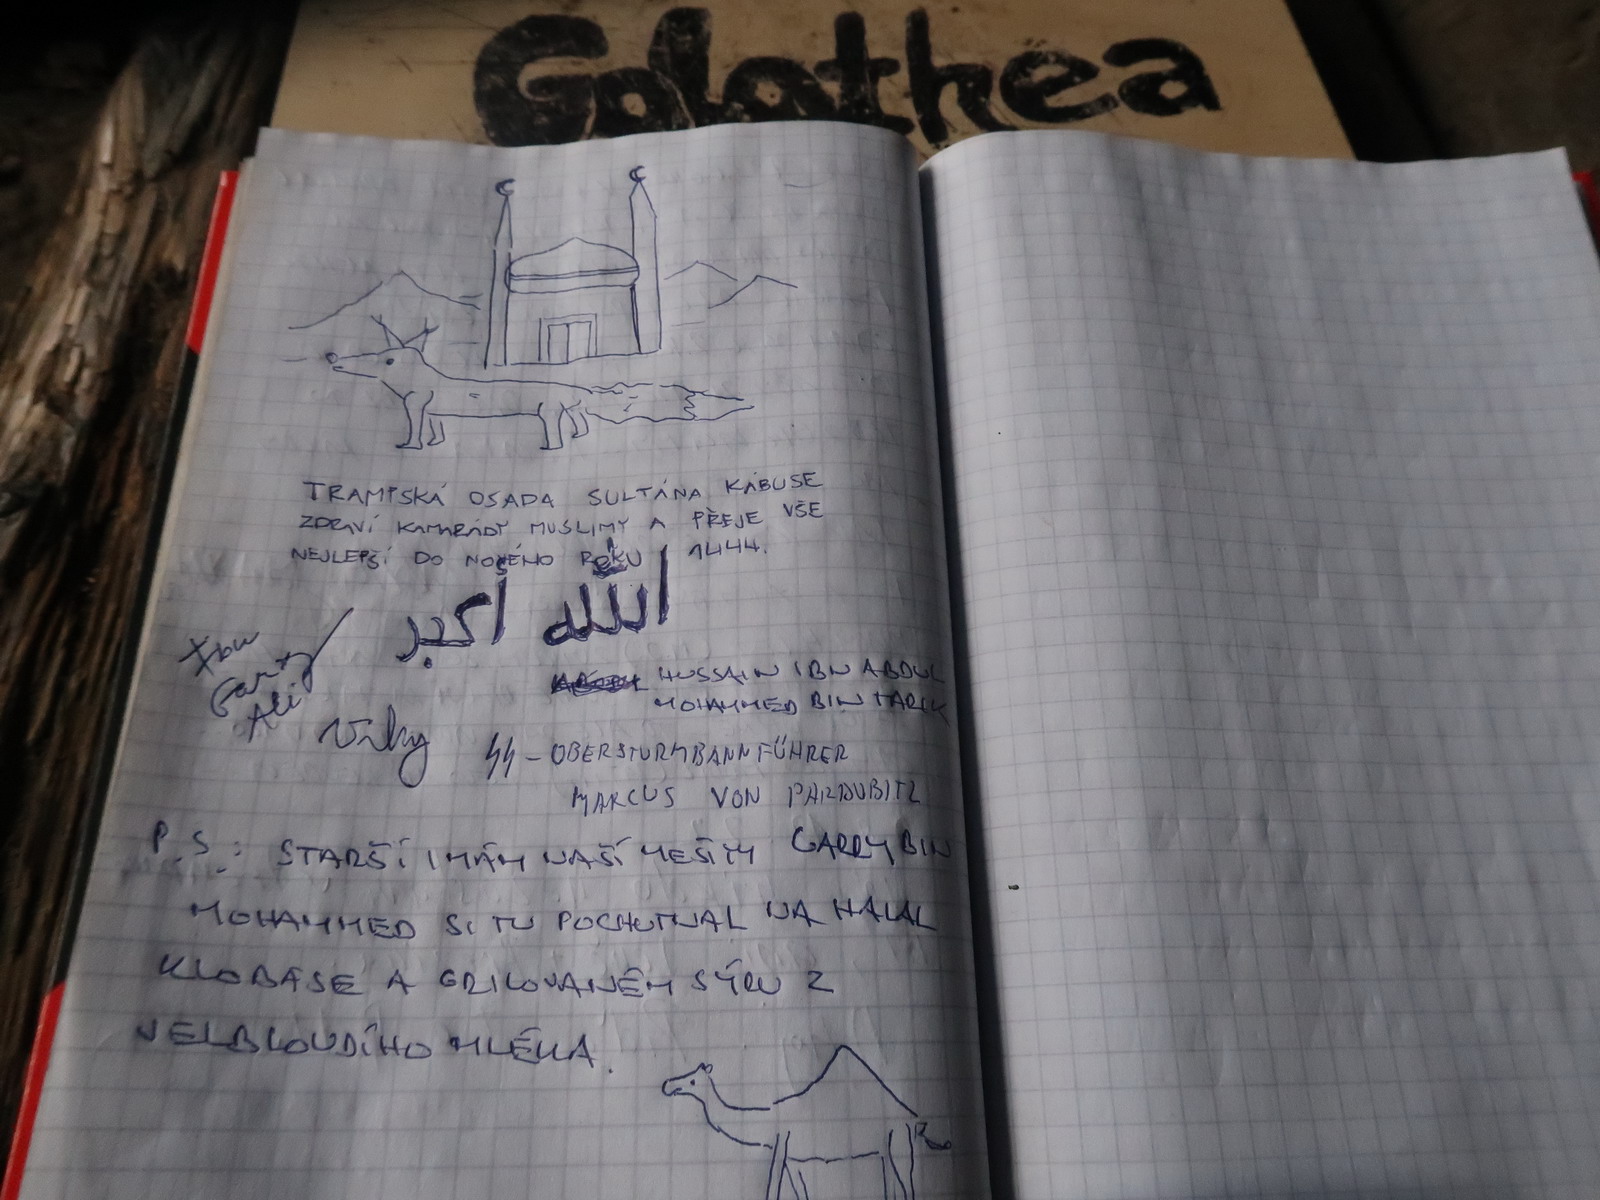 Galathea
TRAMPSKÁ OSADA SULTÁNA KÁBUSE
ZDRAVÍ KAMARÁDY MUSLIMY A PŘEJE VŠE
NEJLEPŠÍ DO NOVÉHO ROKU 1444.
الله أكبر
Ibn
Garry
Ali
HUSSAIN IBN ABDUL
MOHAMMED BIN TARIK
Vilky
SS - OBERSTURMBANNFÜHRER
MARCUS VON PARDUBITZ
P.S.: STARŠÍ IMÁM NAŠÍ MEŠITY GARRY BIN
MOHAMMED SI TU POCHUTNAL NA HALAL
KLOBÁSE A GRILOVANÉM SÝRU Z
VELBLOUDÍHO MLÉKA.